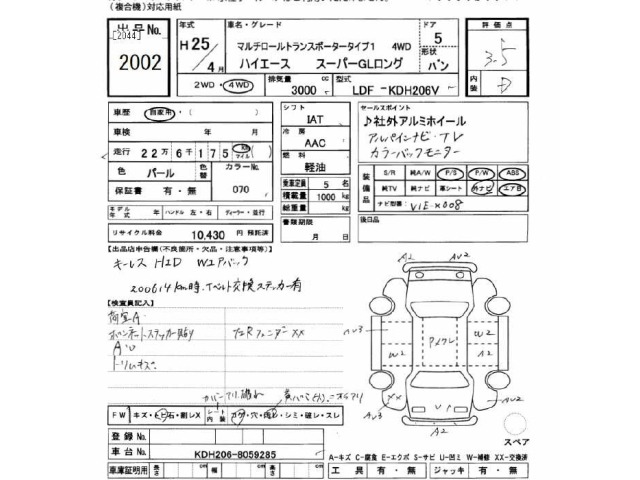 (複合機)対応用紙
出品No. 年式 車名・グレード ドア 評価点
[2044] H25/4月 マルチロールトランスポータータイプ1 4WD 5 3.5
2002 ハイエース スーパーGLロング 形状 バン 内装 D
2WD・4WD 排気量 3000 cc 型式 LDF-KDH206V
車歴 自家用・( ) シフト IAT セールスポイント
車検 年 月 冷房 AAC ♪社外アルミホイール
走行 22万6千175 km マイル アルパインナビ・TV
色 パール 色替 カラーNo. 070 燃料 軽油 カラーバックモニター
保証書 有・無 乗車定員 5 名 装備品 S/R 純A/W P/S P/W ABS
モデル年式 年 ハンドル 左・右 ディーラー・並行 積載量 1000 kg 純TV 純ナビ 革シート 外ナビ エアB
総重量 kg ナビ型番: VIE-X008
リサイクル料金 10,430 円 預託済 書類期限 月 日 後日品
【出品店申告欄(不良箇所・欠品・注意事項等)】
キーレス HID Wエアバック
200614km時、Tベルト交換ステッカー有
【検査員記入】
荷室A
ボンネットステッカー貼り
トリムキズ
FW キズ・トビ石・割レX シート内装 コゲ・穴・切レ・シミ・破レ・スレ
A2 AV2
AV3 W2 W2 A2
XX AV3 A2 AV2
スペア
登録No.
車台No. KDH206-8059285
A-キズ C-腐食 E-エクボ S-サビ U-凹ミ W-補修 XX-交換済
車庫証明用 長さ cm 幅 cm 高さ cm 工具 有・無 ジャッキ 有・無